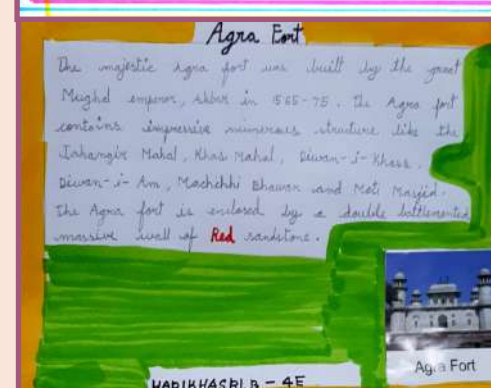 Agra Fort
The majestic Agra fort was built by the great
Mughal emperor, Akbar in 565-75. The Agra fort
contains impressive numerous structure like the
Jahangir Mahal, Khas Mahal, Diwan-i-Khass.
Diwan-i-Am, Machchhi Bhawan and Moti Masjid.
The Agra fort is enclosed by a double battlemented
massive wall of Red sandstone.
Agra Fort
- 4E